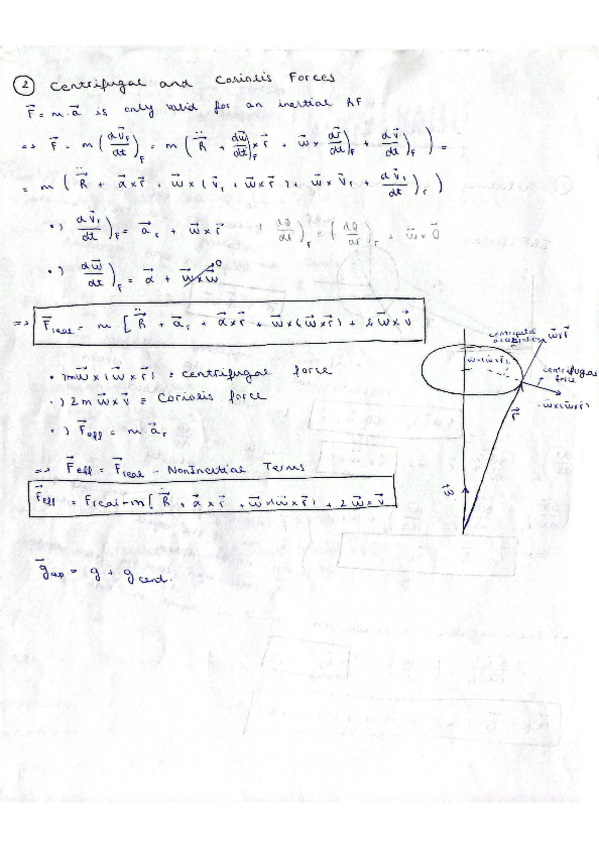 ② Centrifugal and Coriolis Forces
F⃗ = m·a⃗ is only valid for an inertial RF
=> F⃗ = m (dv⃗_F/dt)_F = m ( R⃗̈ + dω⃗/dt)_F × r⃗ + ω⃗ × dr⃗/dt)_F + dv⃗_r/dt)_F ) =
= m ( R⃗̈ + α⃗×r⃗ + ω⃗×(v⃗_r + ω⃗×r⃗) + ω⃗×v⃗_r + dv⃗_r/dt)_r )
•) dv⃗_r/dt)_F = a⃗_r + ω⃗×r⃗
•) dω⃗/dt)_F = α⃗ + ω⃗×ω⃗ 0
=> F⃗real = m [ R⃗̈ + a⃗_r + α⃗×r⃗ + ω⃗×(ω⃗×r⃗) + 2ω⃗×v⃗
•) mω⃗×(ω⃗×r⃗) = centrifugal force
•) 2m ω⃗×v⃗ = Coriolis force
•) F⃗eff = m·a⃗_r
=> F⃗eff = F⃗real - NonInertial Terms
F⃗eff = Freal - m[ R⃗̈ + α⃗×r⃗ + ω⃗×(ω⃗×r⃗) + 2ω⃗×v⃗
centripetal
acceleration
ω⃗×r⃗
ω⃗×(ω⃗×r⃗)
centrifugal
force
-ω⃗×(ω⃗×r⃗)
r⃗
ω⃗
g⃗ = g + g cent.